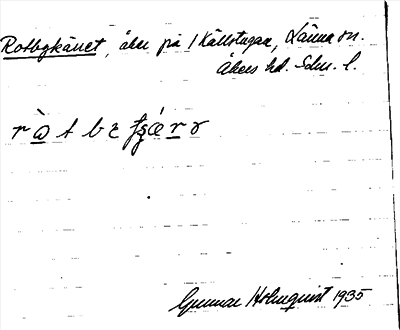 Rotbykäret, åker på 1 Källstugan, Länna sn.
Åkers hd. Sdm. l.
Gunnar Holmquist 1935